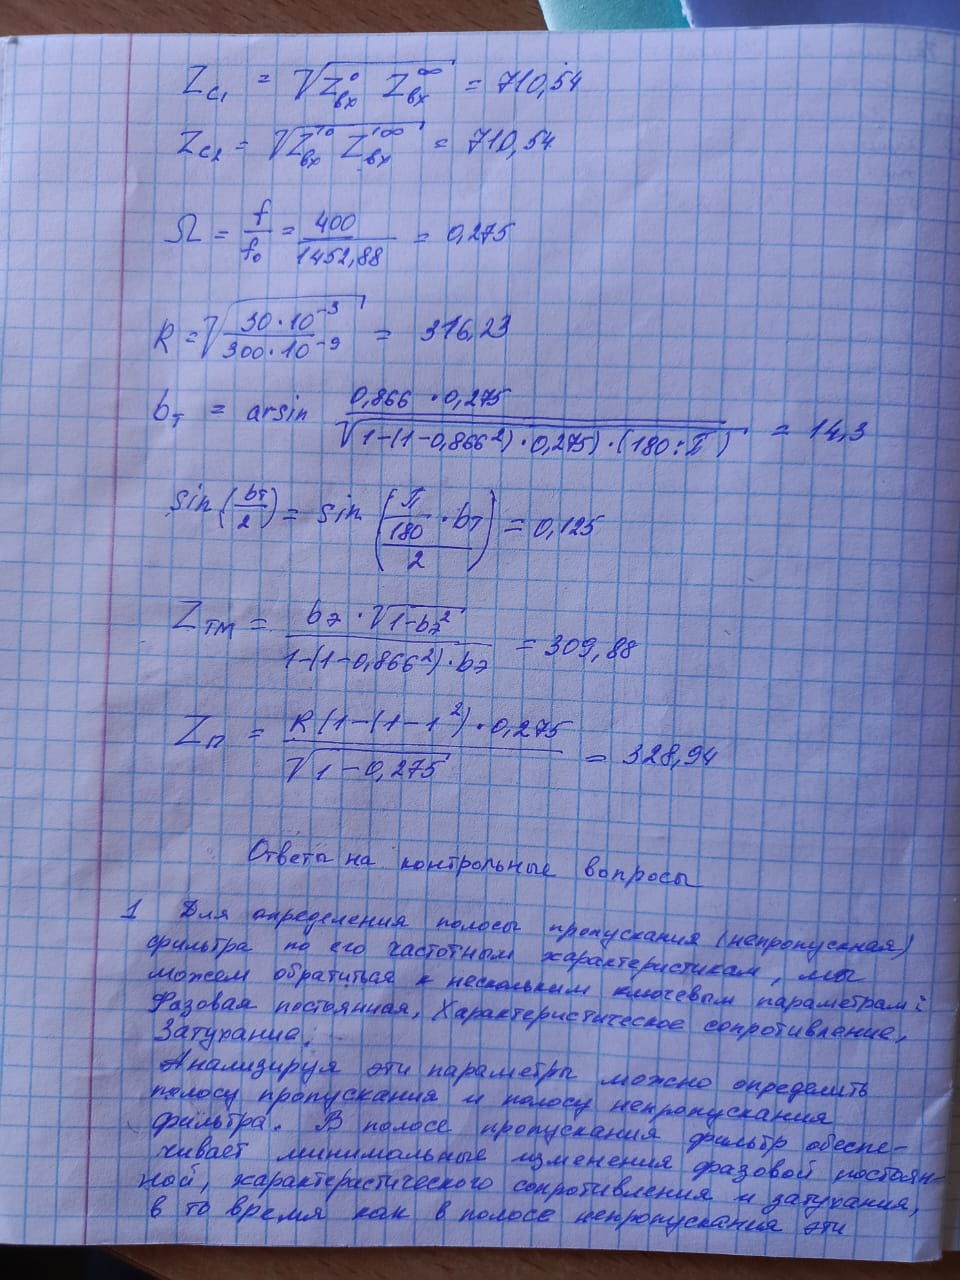 Zс₁ = √(Z⁰вх Z^∞вх) = 710,54
Zс₂ = √(Z'⁰вх Z'^∞вх) = 710,54
Ω = f/f₀ = 400/1452,88 = 0,275
R = √(30·10⁻³/300·10⁻⁹) = 316,23
bт = arsin 0,866·0,275/√(1-(1-0,866²)·0,275)·(180:π) = 14,3
sin(bт/2) = sin((π/180·bт)/2) = 0,125
Zтм = b7·√(1-b7²)/(1-(1-0,866²)·b7) = 309,88
Zп = R(1-(1-1²)·0,275/√(1-0,275) = 328,94
Ответы на контрольные вопросы
1 Для определения полосы пропускания (непропускная)
фильтра по его частотным характеристикам, мы
можем обратиться к нескольким ключевым параметрам:
Фазовая постоянная, Характеристическое сопротивление,
Затухание.
Анализируя эти параметры можно определить
полосу пропускания и полосу непропускания
фильтра. В полосе пропускания фильтр обеспе-
чивает минимальные изменения фазовой постоян-
ной, характеристического сопротивления и затухания,
в то время как в полосе непропускания эти